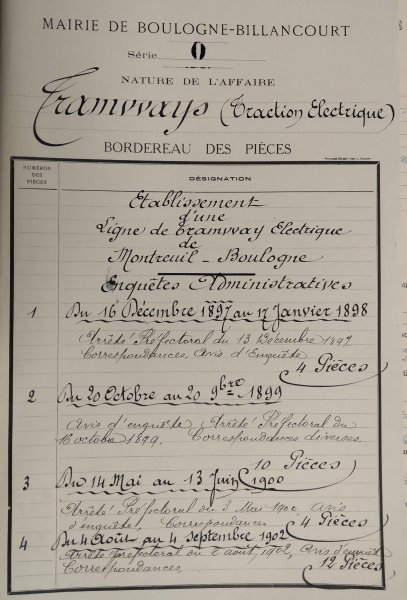 MAIRIE DE BOULOGNE-BILLANCOURT
Série O
NATURE DE L'AFFAIRE
Tramvvays (Traction Electrique)
BORDEREAU DES PIÈCES
NUMÉROS DES PIÈCES
DÉSIGNATION
Etablissement
d'une
Ligne de Tramvvay Electrique
de
Montreuil - Boulogne
Enquêtes Administratives
1 Du 16 Décembre 1897 au 17 Janvier 1898
Arrêté Préfectoral du 13 Décembre 1897
Correspondances, Avis d'Enquête
4 Pièces
2 Du 20 Octobre au 20 9bre 1899
Avis d'enquête Arrêté Préfectoral du
16 octobre 1899. Correspondances diverses
10 Pièces
3 Du 14 Mai au 13 Juin 1900
Arrêté Préfectoral du 3 Mai 1900, avis
d'enquête, Correspondances
4 Pièces
4 Du 4 Août au 4 septembre 1902
Arrêté préfectoral du 2 août, 1902, Avis d'enquête
Correspondances
12 Pièces